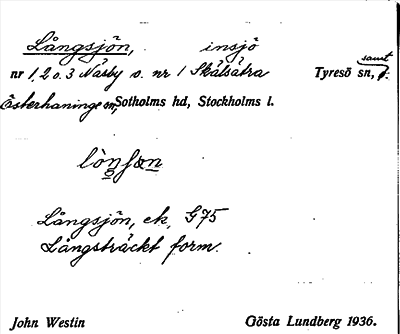 Långsjön, insjö
samt
nr 1, 2 o. 3 Näsby o. nr 1 Skälsätra Tyresö sn,
Österhaninge sn, Sotholms hd, Stockholms l.
Långsjön, ek, G75
Långsträckt form.
John Westin Gösta Lundberg 1936.